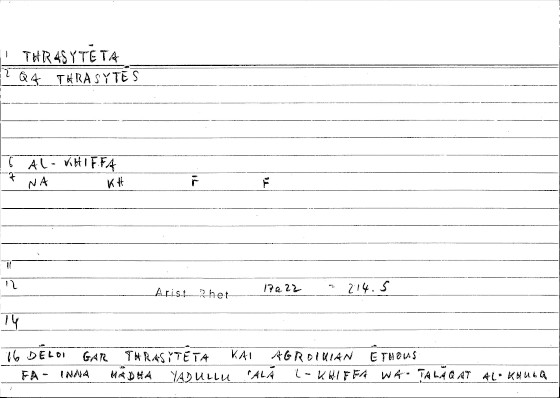 1 THRASYTĒTA
2 QA THRASYTĒS
6 AL-KHIFFA
7 NA KH F F
11
12 Arist Rhet 17a22 ~ 214.5
14
16 DĒLOI GAR THRASYTĒTA KAI AGROIKIAN ĒTHOUS
FA-INNA HĀDHA YADULLU ʿALĀ L-KHIFFA WA-ṬALĀQAT AL-KHULQ